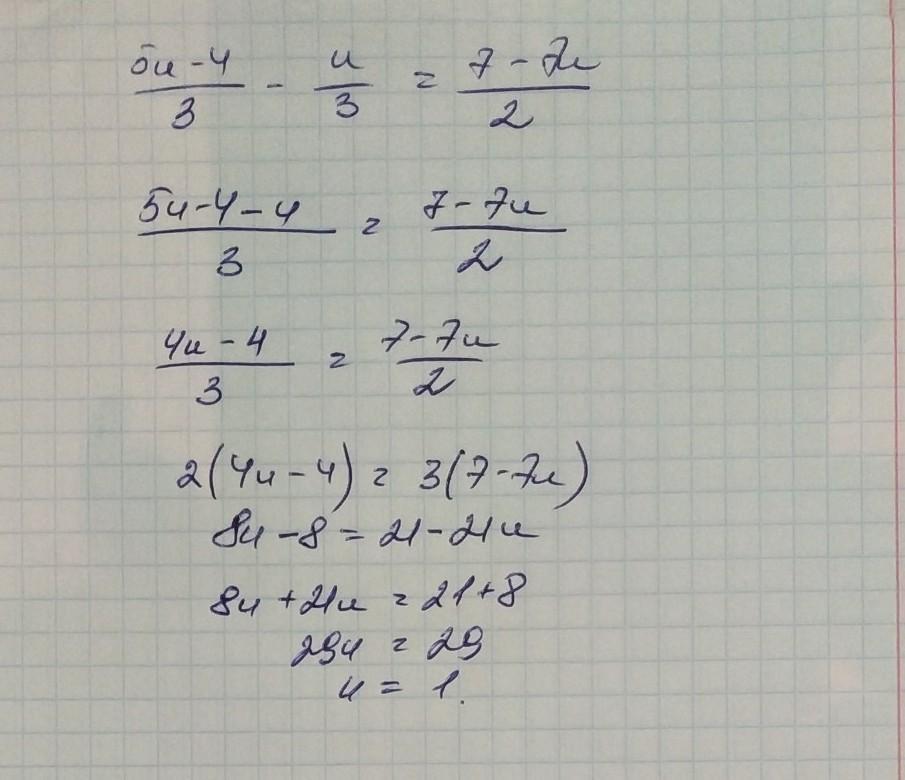 (5u-4)/3 - u/3 = (7-7u)/2
(5u-4-u)/3 = (7-7u)/2
(4u-4)/3 = (7-7u)/2
2(4u-4) = 3(7-7u)
8u-8 = 21-21u
8u+21u = 21+8
29u = 29
u = 1.